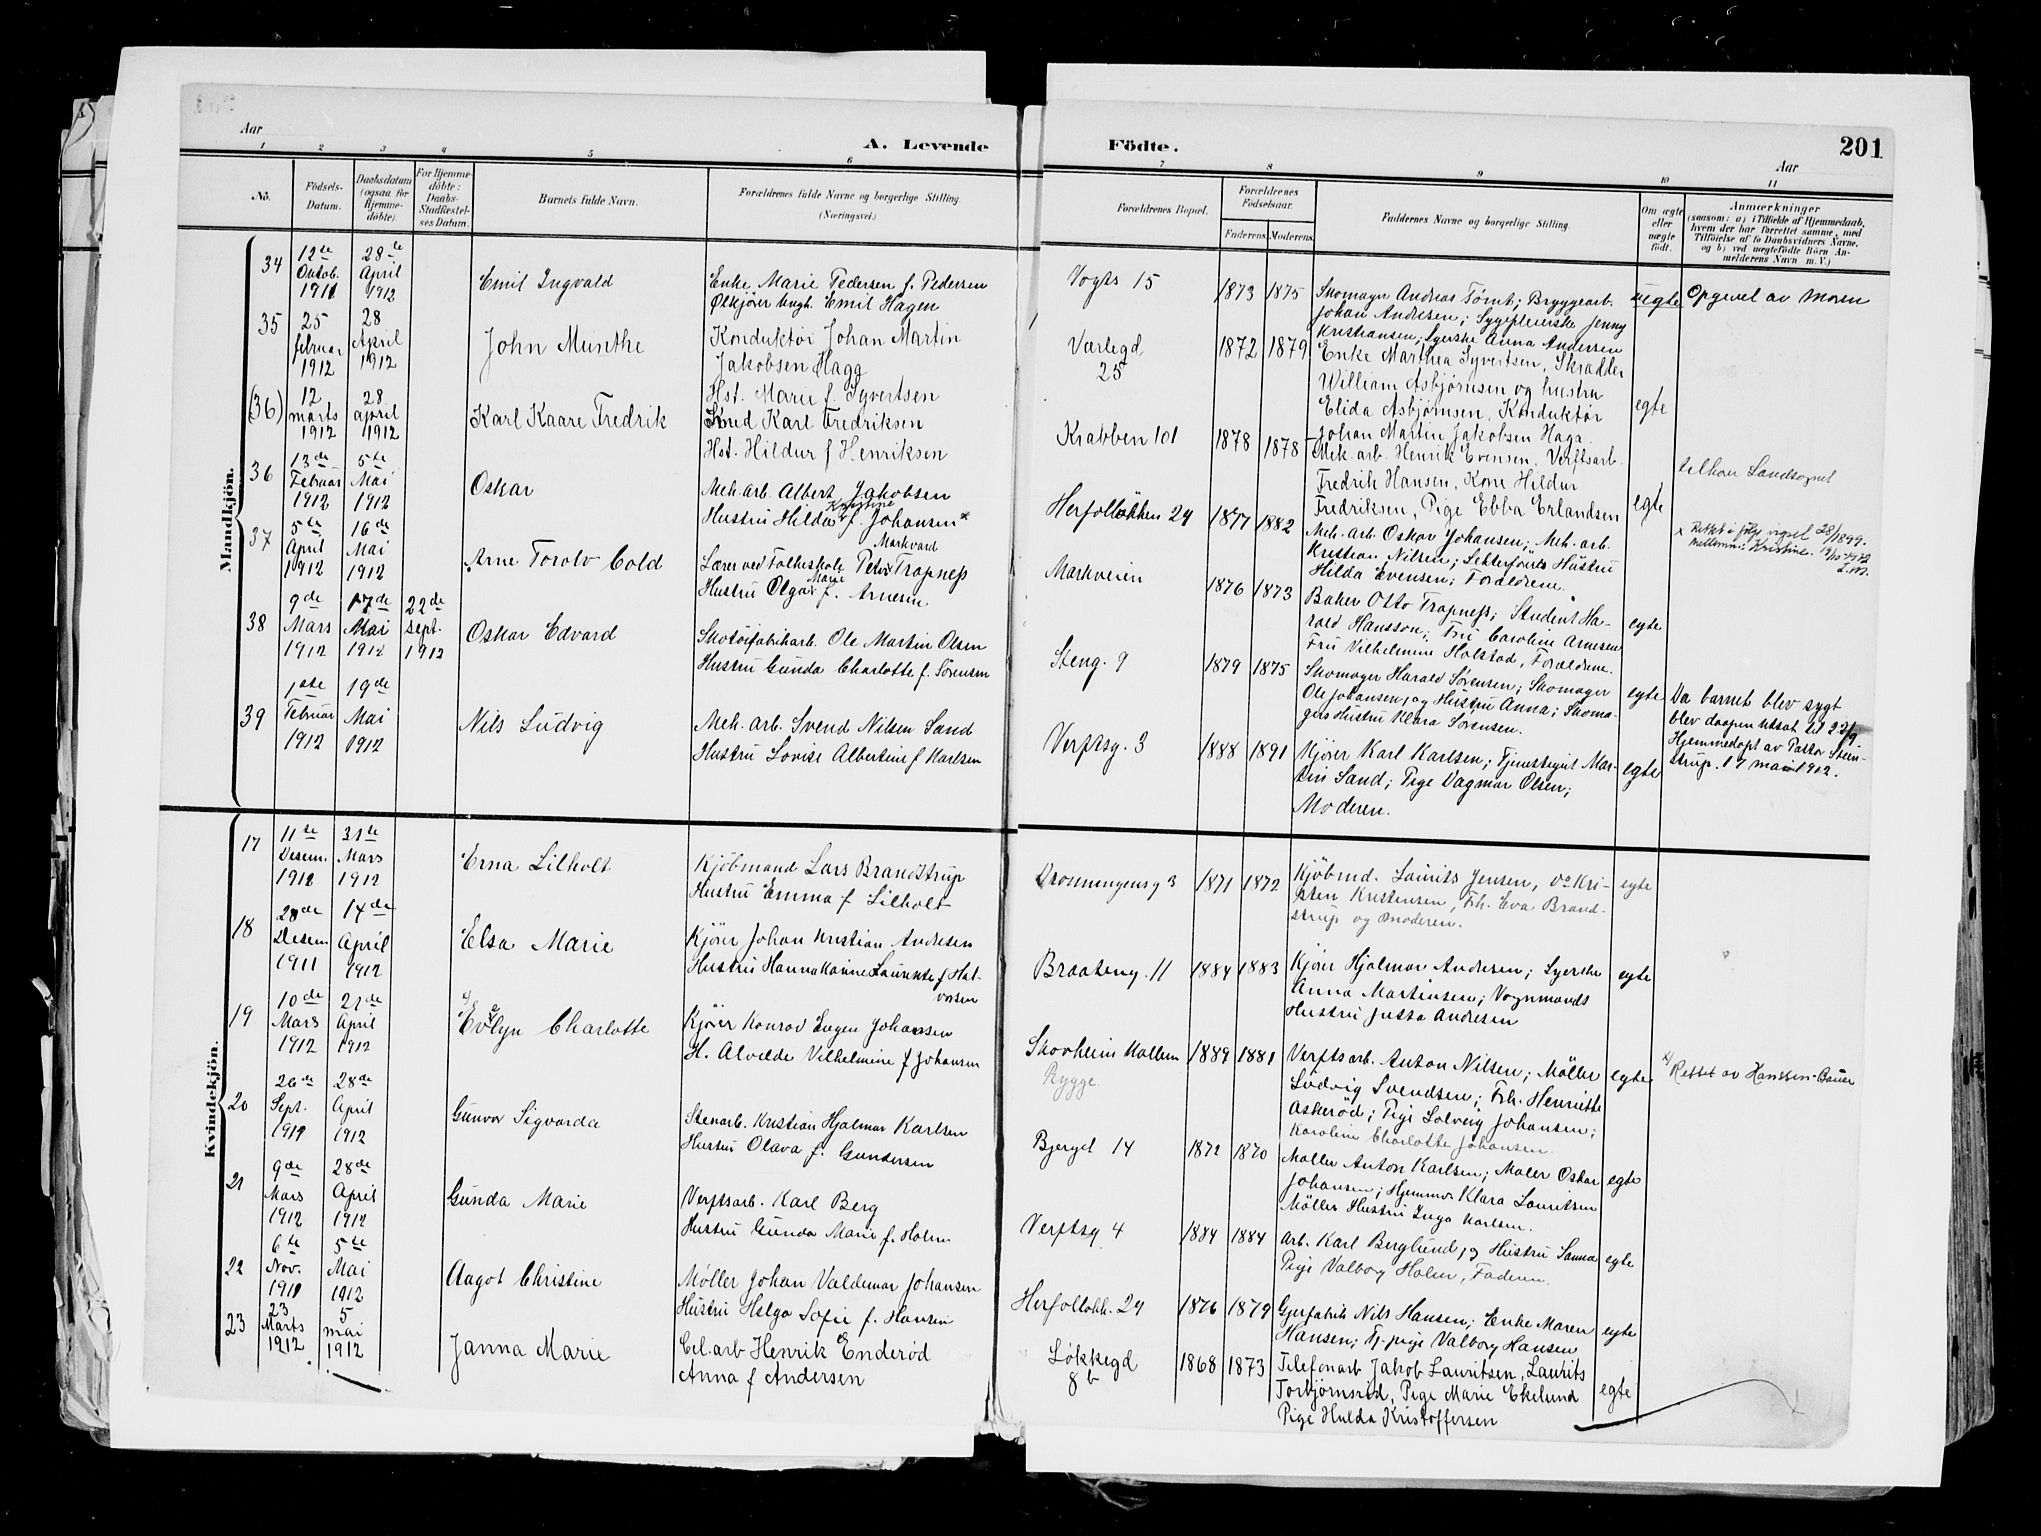 Aar
A. Levende
Födte.
201
Aar
1 2 3 4 5 6 7 8 9 10 11
No.
Födsels-
Datum.
Daabsdatum
(ogsaa for
Hjemme-
döbte).
For Hjemme-
döbte:
Daabs-
Stadfæstel-
ses Datum.
Barnets fulde Navn.
Forældrenes fulde Navne og borgerlige Stilling.
(Næringsvei.)
Forældrenes Bopæl.
Forældrenes
Födselsaar.
Faderens. Moderens.
Faddernes Navne og borgerlige Stilling.
Om ægte
eller
uægte
födt.
Anmærkninger
(saasom: a) i Tilfælde af Hjemmedaab,
hvem der har forrettet samme, med
Tilföielse af to Daabsvidners Navne,
og b) ved uægtefödte Börn An-
melderens Navn m. V.)
Mandkjön.
34
12te
Oktob.
1911
28de
April
1912
Emil Ingvald
Enke Marie Pedersen f. Pedersen
Ølkjører Emil Hagen
Vogts 15
1873 1875
Skomager Andreas Tømt; Bryggearb.
Johan Andresen; Sygepleierske Jenny
Kristiansen; Syerske Anna Andersen
uegte
Opgivet av Moren
35
25
februar
1912
28
April
1912
John Munthe
Konduktør Johan Martin
Jakobsen Haga
Hst. Marie f. Syvertsen
Varlegd.
25
1872 1879
Enke Marthea Syvertsen, Skrædder
William Asbjørnsen og hustru
Elida Asbjørnsen, Konduktør
Johan Martin Jakobsen Haga.
egte
(36)
12
marts
1912
28
april
1912
Karl Kaare Fredrik
Smed Karl Fredriksen
Hst. Hildur f Henriksen
Krabben 101
1878 1878
Mek. arb. Henrik Evensen, Verftsarb.
Fredrik Hansen, Kone Hildur
Fredriksen, Pige Ebba Erlandsen
egte
Landsognet
36
13de
Februar
1912
5te
Mai
1912
Oskar
Mek. arb. Albert Jakobsen
Kristine
Hustru Hilda f. Johansen x
Herfolløkken 24
1877 1882
Mek. arb. Oskar Johansen; Mek. arb.
Kristian Nilsen; Hustru
Hilda Evensen; Forældrene.
x Rettet i følge vigsel 28/1899.
mellemn.: Kristine. 19/10-1972
37
5te
April
1912
16de
Mai
1912
Arne Torolv Cold
Markvard
Lærer ved Folkeskole Peter Trapness
Marie
Hustru Olga f. Arnesen
Markveien
1876 1873
Baker Otto Trapness; Student Ha-
rald Hansson; Fru Caroline Arnesen
Fru Vilhelmine Holstad, Forældrene.
egte
38
9de
Mars
1912
17de
Mai
1912
22de
Sept.
1912
Oskar Edvard
Skotøifabrikarb. Ole Martin Olsen
Hustru Gunda Charlotte f. Sørensen
Steng. 9
1879 1875
Skomager Harald Sørensen; Skomager
Ole Johansen og Hustru Anna; Skoma-
gers Hustru Klara Sørensen.
egte
Da barnet blev sygt
blev daapen utsat til 22/9.
Hjemmedøpt av Pastor Steen-
strup. 17 mai 1912.
39
1ste
Februar
1912
19de
Mai
1912
Nils Ludvig
Mek. arb. Svend Nilsen Sand
Hustru Lovise Albertine f Karlsen
Verftsg. 3
1888 1891
Kjører Karl Karlsen; Tjenestegut Mar-
tin Sand; Pige Dagmar Olsen;
Moderen.
egte
Kvindekjön.
17
11te
Desem.
1911
31te
Mars
1912
Erna Lilholt
Kjöbmand Lars Brandstrup
Hustru Emma f Lilholt
Dronningensg 3
1871 1872
Kjöbmd. Laurits Jensen, do Kri-
sten Kristensen, Frk. Eva Brand-
strup og Moderen.
egte
18
28de
Desem
1911
14de
April
1912
Elsa Marie
Kjører Johan Kristian Andresen
Hustru Hanna Karine Laurense f Hal-
vorsen
Braateng. 11
1884 1883
Kjører Hjalmar Andresen; Syerske
Anna Martinsen; Vognmands
Hustru Jutta Andresen
egte
19
10de
Mars
1912
21de
April
1912
x) Evelyn Charlotte
Kjører Konrad Eugen Johansen
H. Alvilde Vilhelmine f Johansen
Skovheim Kallum
Rygge
1889 1881
Verftsarb. Anton Nilsen; Møller
Ludvig Svendsen; Frk. Henriette
Askerød; Pige Solveig Johansen;
Karoline Charlotte Johansen.
egte
x) Rettet av Hanssen-Bauer
20
26de
Sept.
1911
28de
April
1912
Gunvor Sigvarda
Stenarb. Kristian Hjalmar Karlsen
Hustru Olava f. Gundersen
Bjerget 14
1872 1870
Møller Anton Karlsen; Maler Oskar
Johansen; Hjemmev. Klara Lauritsen
Møller Hustru Inga Karlsen.
egte
21
9de
Mars
1912
28de
April
1912
Gunda Marie
Verftsarb. Karl Berg
Hustru Gunda Marie f. Holm
Verftsg 4
1884 1884
Arb. Karl Berglund og Hustru Sanna
Pige Valborg Holm, Faderen.
egte
22
6te
Nov.
1911
5te
Mai
1912
Aagot Christine
Møller Johan Valdemar Johansen
Hustru Helga Sofie f. Hansen
Herfolløkk. 24
1876 1879
Gjerfabrik Nils Hansen; Enke Maren
Hansen; Tj. pige Valborg Hansen
egte
23
23
Marts
1912
5
mai
1912
Janna Marie
Cel. arb Henrik Enderød
Anna f Andersen
Løkkegd
8b
1868 1873
Telefonarb Jakob Lauritsen, Laurits
Torbjørnsrød, Pige Marie Ekelund
Pige Hulda Kristoffersen
egte